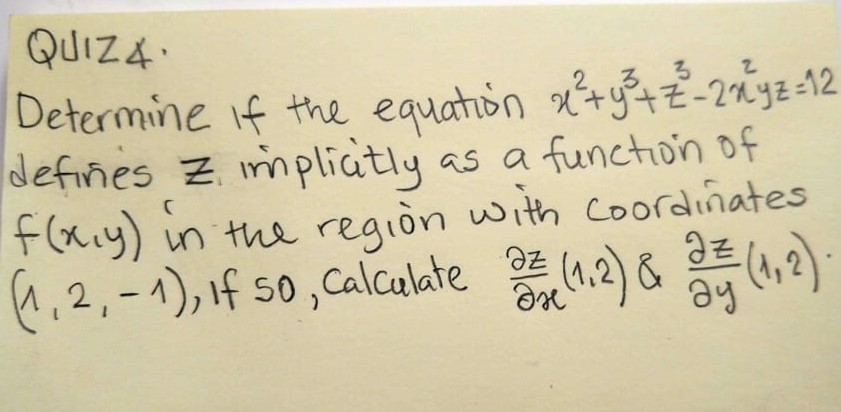 QUIZ 4.
Determine if the equation x²+y³+z³-2x²yz=12
defines z implicitly as a function of
f(x,y) in the region with coordinates
(1,2,-1), if so, Calculate ∂z/∂x (1,2) & ∂z/∂y (1,2).